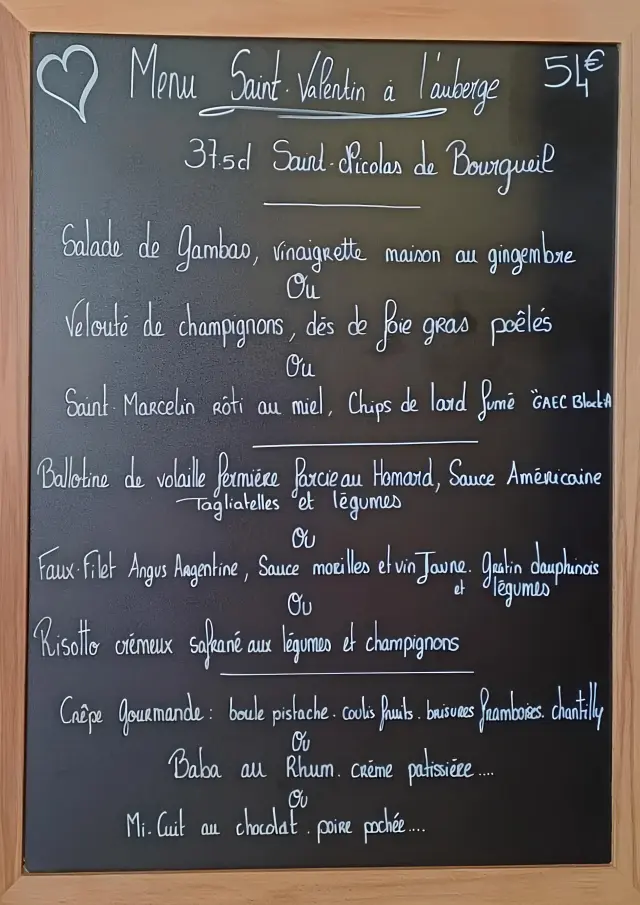 Menu Saint-Valentin à l'auberge 54€
37.5cl Saint-Nicolas de Bourgueil
Salade de Gambas, vinaigrette maison au gingembre
Ou
Velouté de champignons, dés de foie gras poêlés
Ou
Saint-Marcelin rôti au miel, Chips de lard fumé "GAEC Block A
Ballotine de volaille fermière farcie au Homard, Sauce Américaine
Tagliatelles et légumes
ou
Faux-Filet Angus Argentine, Sauce morilles et vin Jaune. Gratin dauphinois
et légumes
Ou
Risotto crémeux safrané aux légumes et champignons
Crêpe Gourmande : boule pistache. coulis fruits. brisures framboises. chantilly
Ou
Baba au Rhum. crème patissière....
Ou
Mi-Cuit au chocolat. poire pochée....